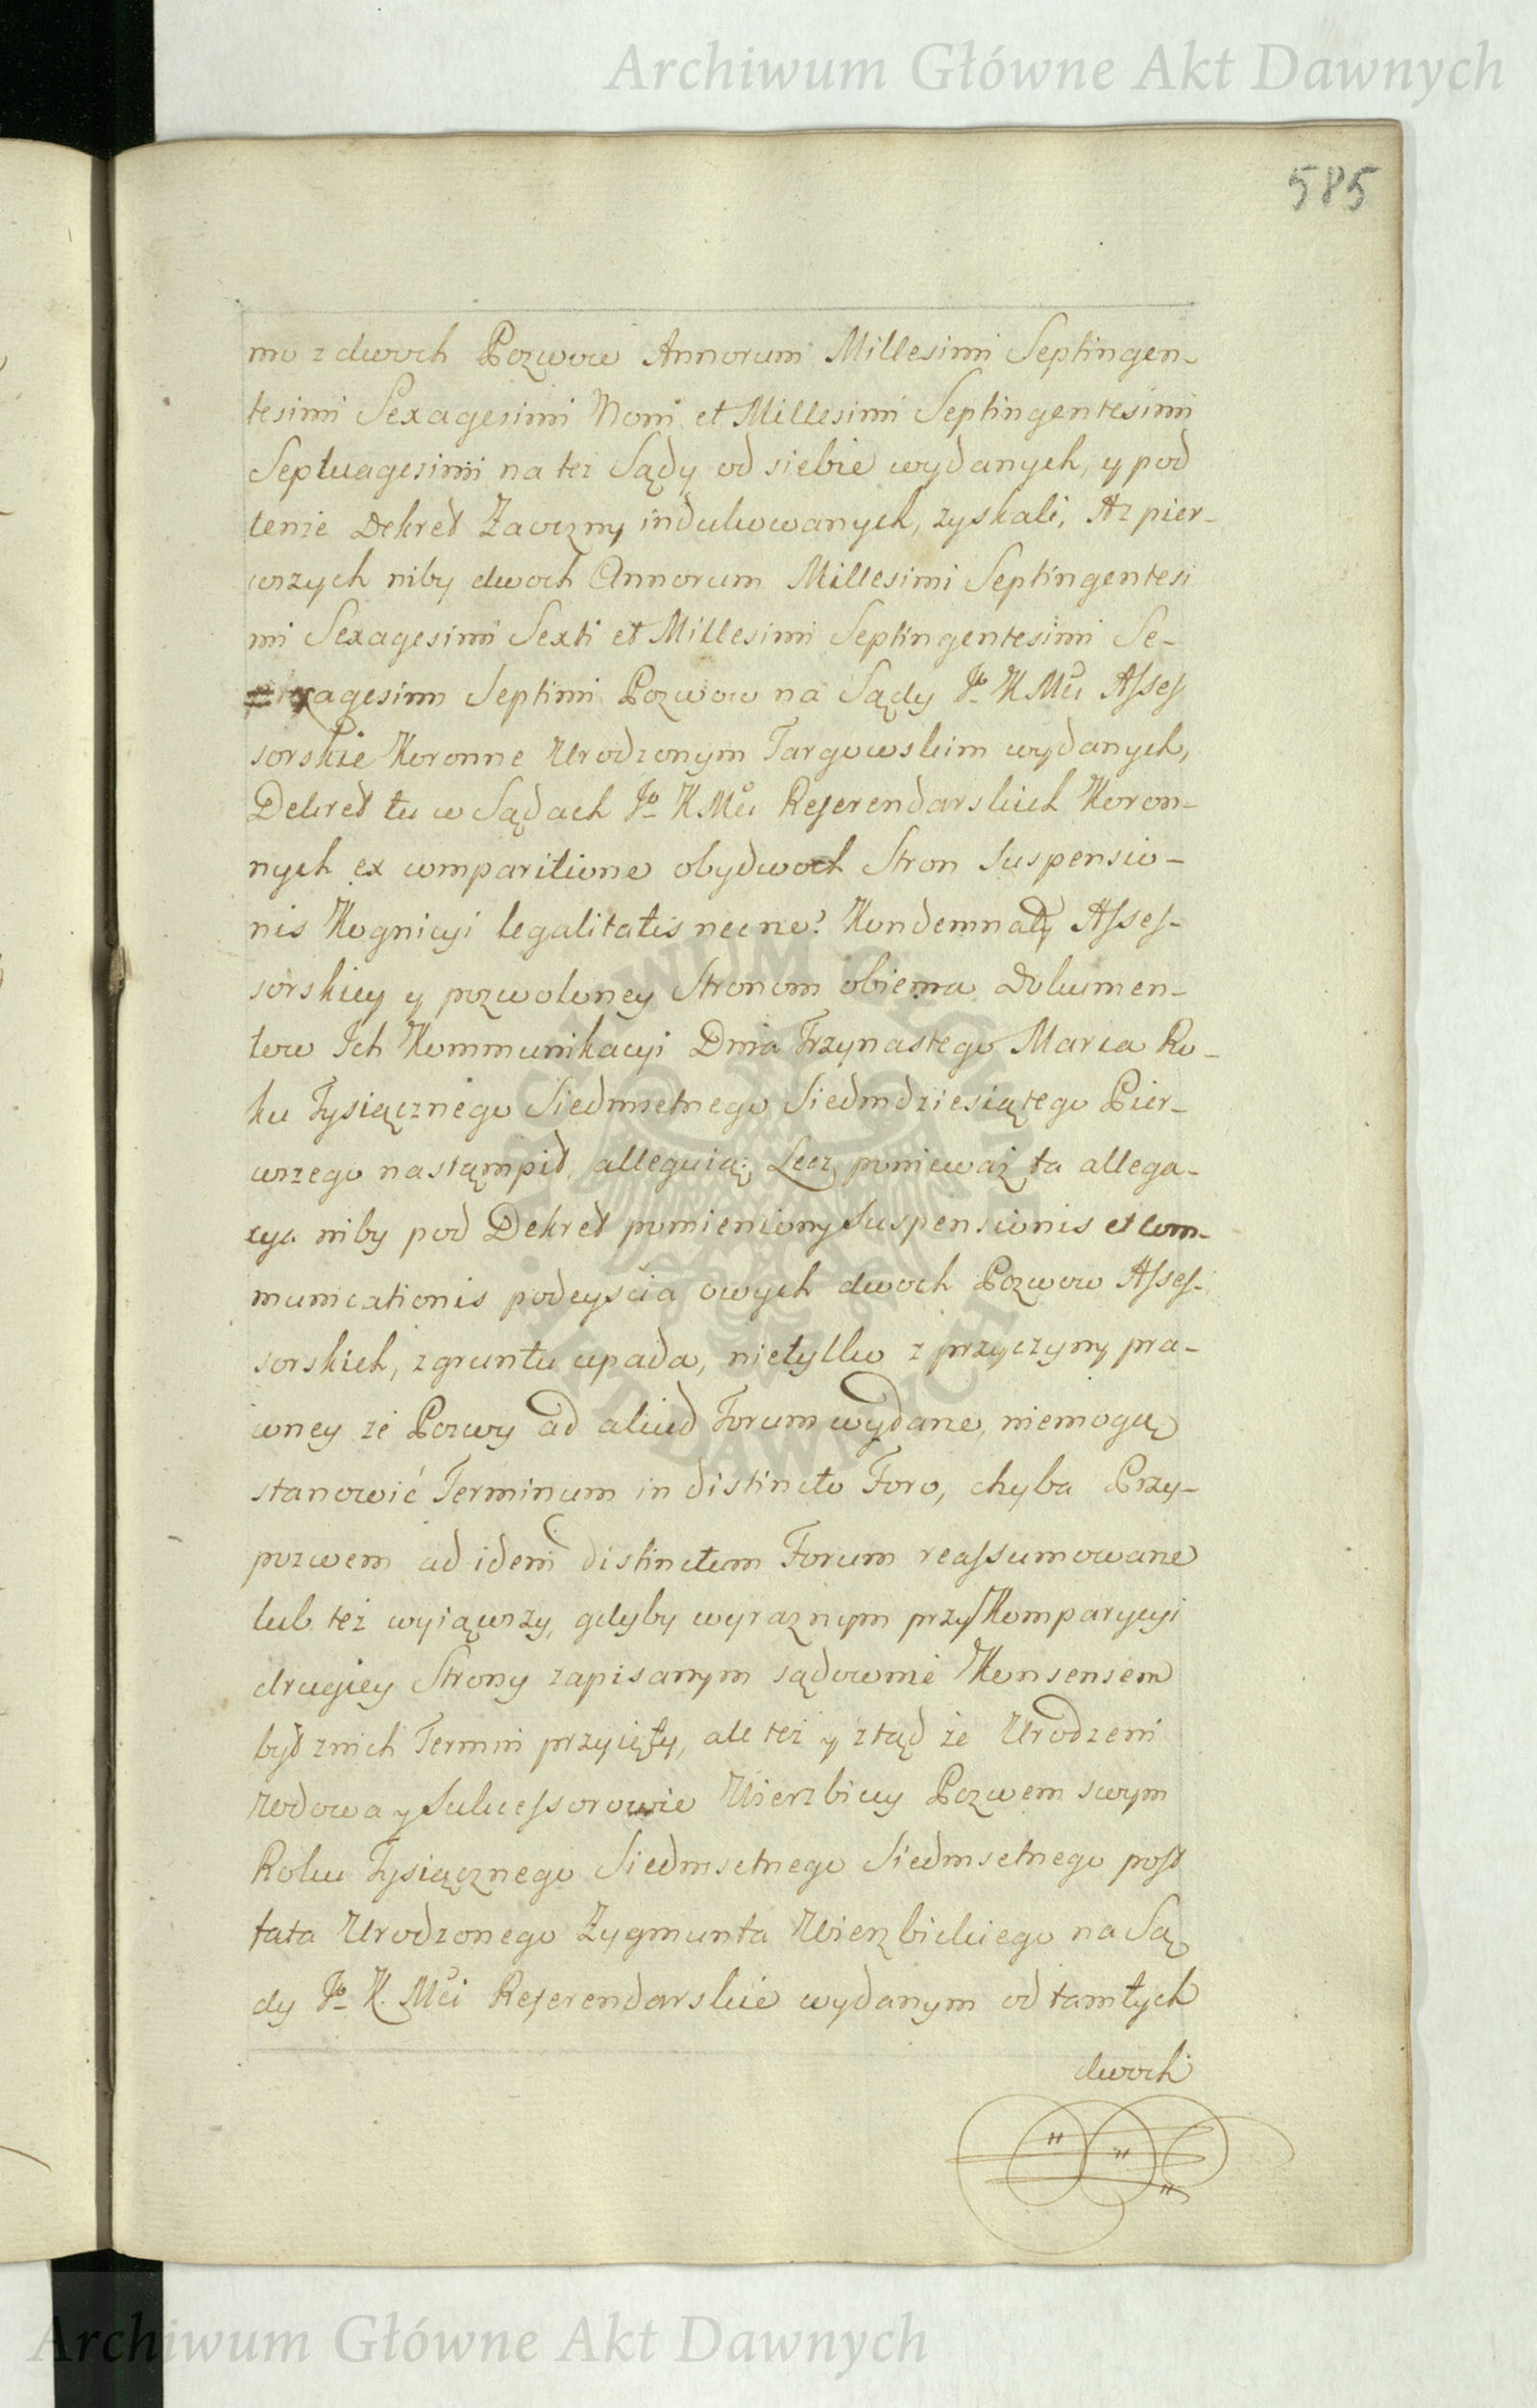 Archiwum Główne Akt Dawnych
585
mo z dwoch Pozwow Annorum Millesimi Septingen-
tesimi Sexagesimi Noni et Millesimi Septingentesimi
Septuagesimi na też Sądy od siebie wydanych, y pod
tenże Dekret Zaoczny indukowanych, zyskali, A z pier-
wszych niby dwoch Annorum Millesimi Septingentesi
mi Sexagesimi Sexti et Millesimi Septingentesimi Se-
xagesimi Septimi Pozwow na Sądy Jo KMci Assess
sorskie Koronne Urodzonym Targowskim wydanych,
Dekret tu w Sądach Jo KMci Referendarskich Koron-
nych ex comparitione obydwoch Stron suspensio-
nis Kognicyi legalitatis necne? Kondemnaty Asses-
sorskiey y pozwoloney Stronom obiema Dokumen-
tow Ich Kommunikacyi Dnia Trzynastego Marca Ro-
ku Tysiącznego Siedmsetnego Siedmdziesiątego Pier-
wszego nastąmpił, alleguią; Lecz ponieważ ta allega-
cya niby pod Dekret pomieniony suspensionis et com-
municationis podeyścia owych dwoch Pozwow Asses-
sorskich, z gruntu upada, nietylko z przyczyny pra-
wney że Pozwy ad aliud Forum wydane, niemogą
stanowić Terminum in distincto Foro, chyba Przy-
pozwem ad idem distinctum Forum reassumowane
lub też wyiąwszy, gdyby wyraznym przy Komparycyi
drugiey Strony zapisanym sądownie Konsensem
był z nich Termin przyięty, ale też y ztąd że Urodzeni
Wdowa y Sukcessorowie Wierzbiccy Pozwem swym
Roku Tysiącznego Siedmsetnego Siedmsetnego post
fata Urodzonego Zygmunta Wierzbickiego na Są
dy Jo K. Mci Referendarskie wydanym od tamtych
dwoch
Archiwum Główne Akt Dawnych